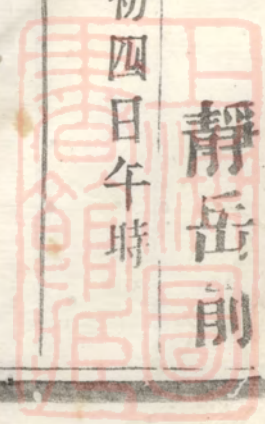 靜岳前
初四日午時